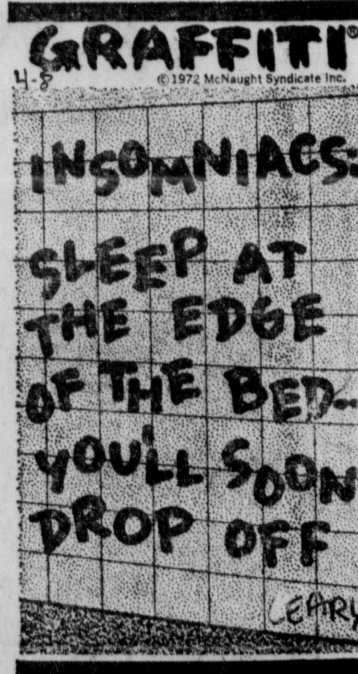 GRAFFITI®
4-8
© 1972 McNaught Syndicate Inc.
INSOMNIACS:
SLEEP AT
THE EDGE
OF THE BED--
YOU'LL SOON
DROP OFF
LEARY